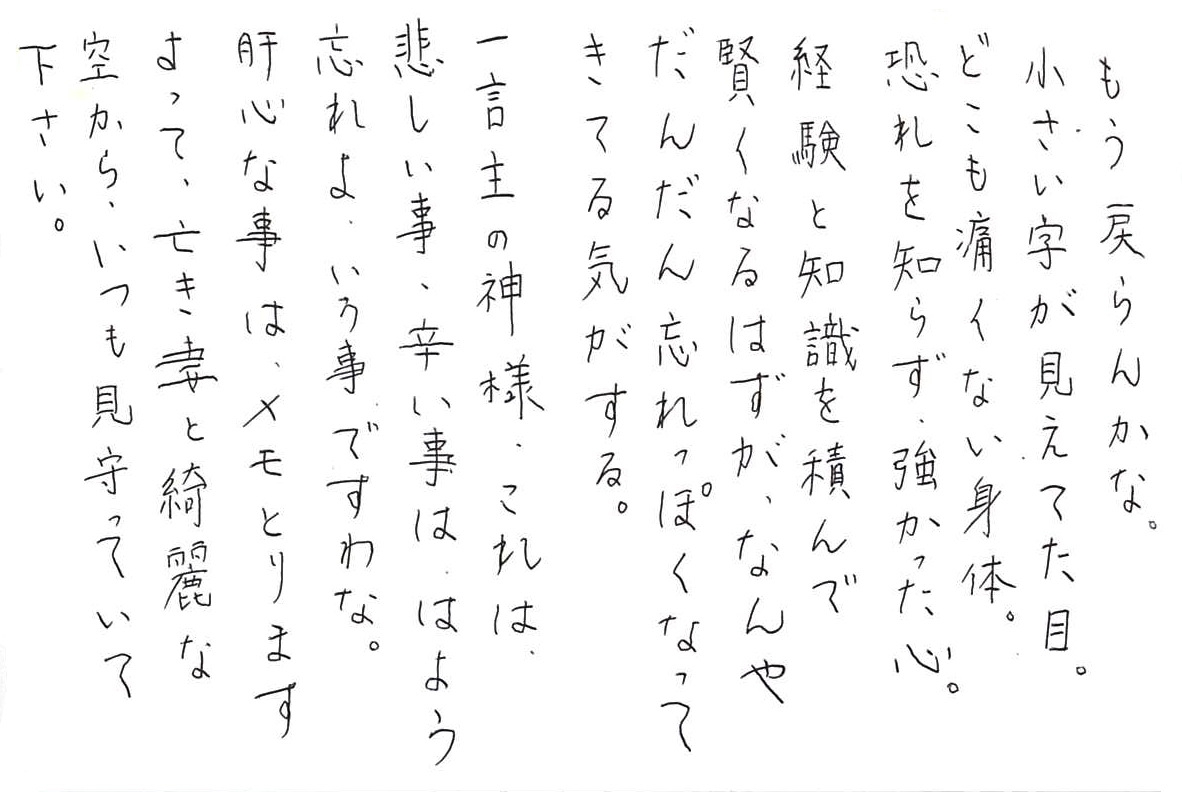 もう戻らんかな。
小さい字が見えてた目。
どこも痛くない身体。
恐れを知らず、強かった心。
経験と知識を積んで
賢くなるはずが、なんや
だんだん忘れっぽくなって
きてる気がする。
一言主の神様、これは、
悲しい事、辛い事は、はよう
忘れよ、いう事ですわな。
肝心な事は、メモとります
よって、亡き妻と綺麗な
空から、いつも見守っていて
下さい。